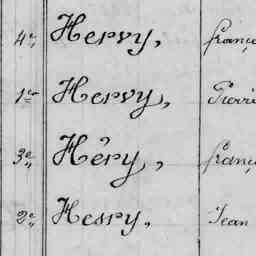 4e Hervy, franç
1er Hervy, Pierre
3e Héry, franç
2e Hesry, Jean